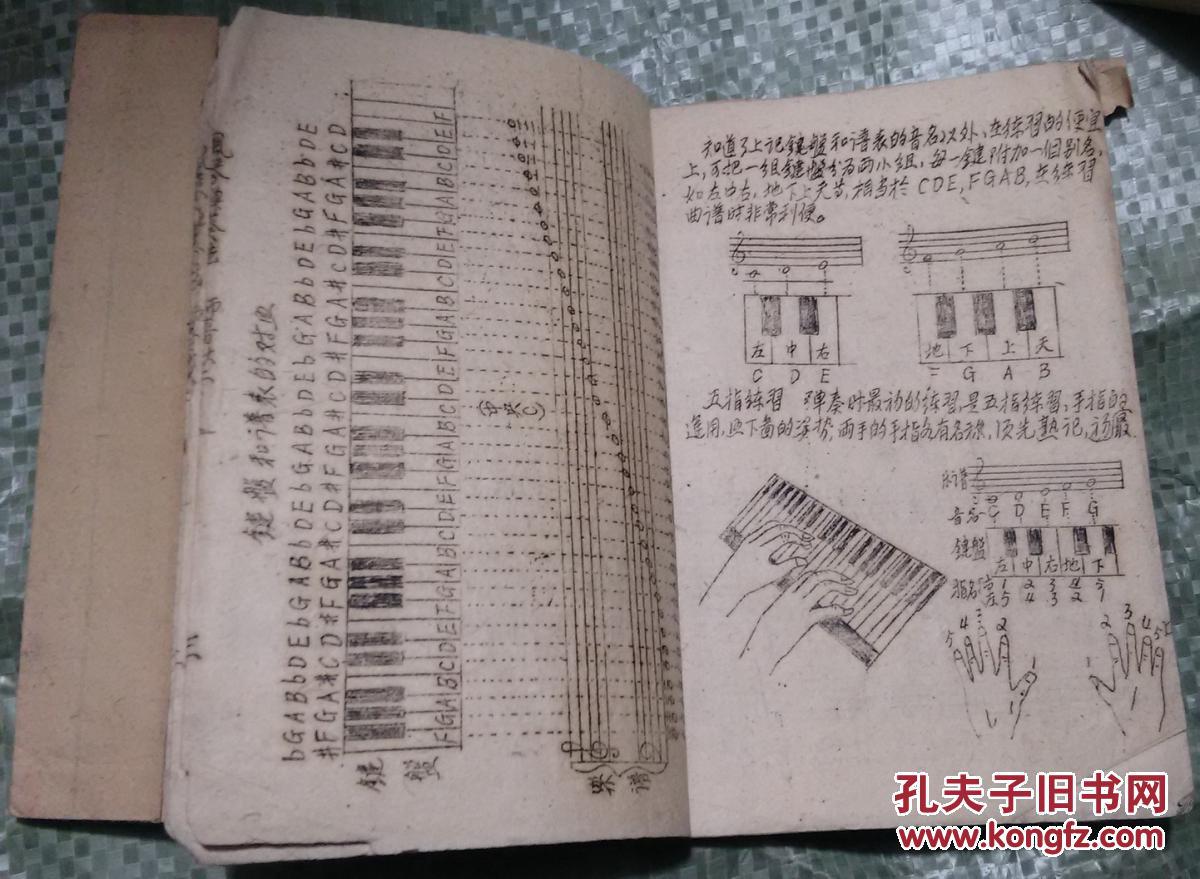 鍵盤和谱表的对照
bGABbDEbGABbDEbGABbDEbGABbDEbGABbDE
#FGA#CD#FGA#CD#FGA#CD#FGA#CD#FGA#CD
鍵盤
FGABCDEFGABCDEFGABCDEFGABCDEFGABCDEF
(中央C)
乐谱
知道了上记鍵盤和谱表的音名以外,在练習的便宜
上,可把一组鍵盤分为两小组,每一鍵附加一個别名,
如左中右,地下上天等,相当於CDE,FGAB,在练習
曲谱时非常利便。
左 中 右
C D E
地 下 上 天
G A B
五指练習 弹奏时最初的练習,是五指练習,手指的
運用,照下面的姿势,兩手的手指各有名称,须先熟记,
音名 C D E F G
鍵盤
左 中 右 地 下
指名 右 1 2 3 4 5
左 5 4 3 2 1
5 4 3 2 1
1 2 3 4 5
孔夫子旧书网
www.kongfz.com